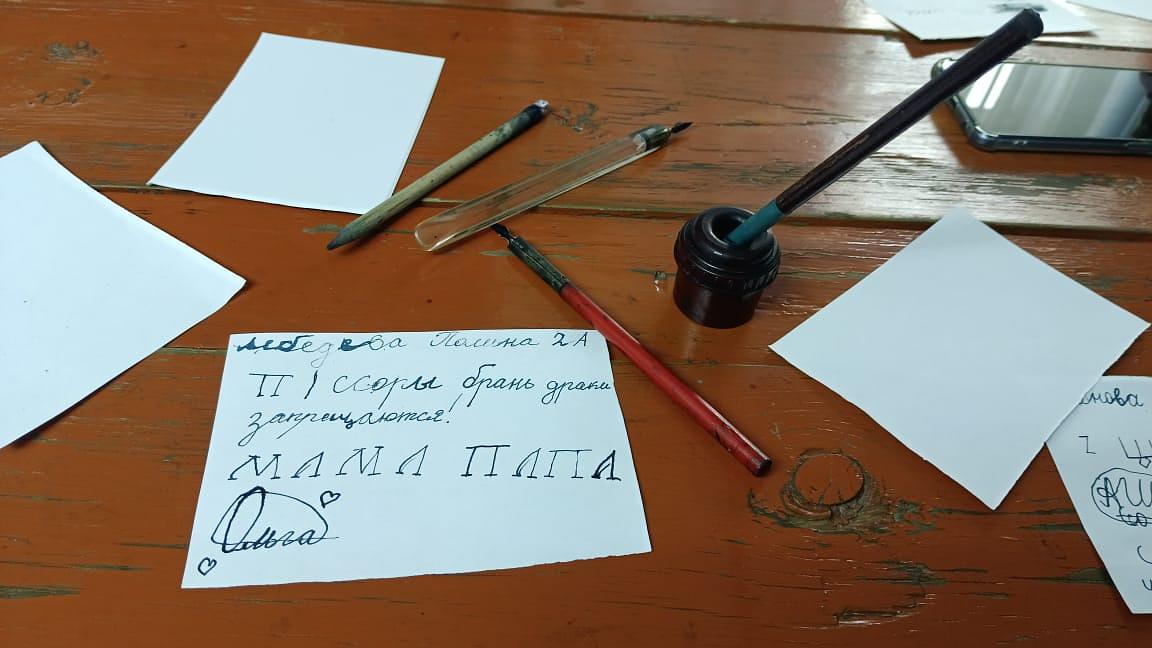 Лебедева Полина 2 А
П / ссоры, брань драки
запрещаются!
МАМА ПАПА
Ольга
нова